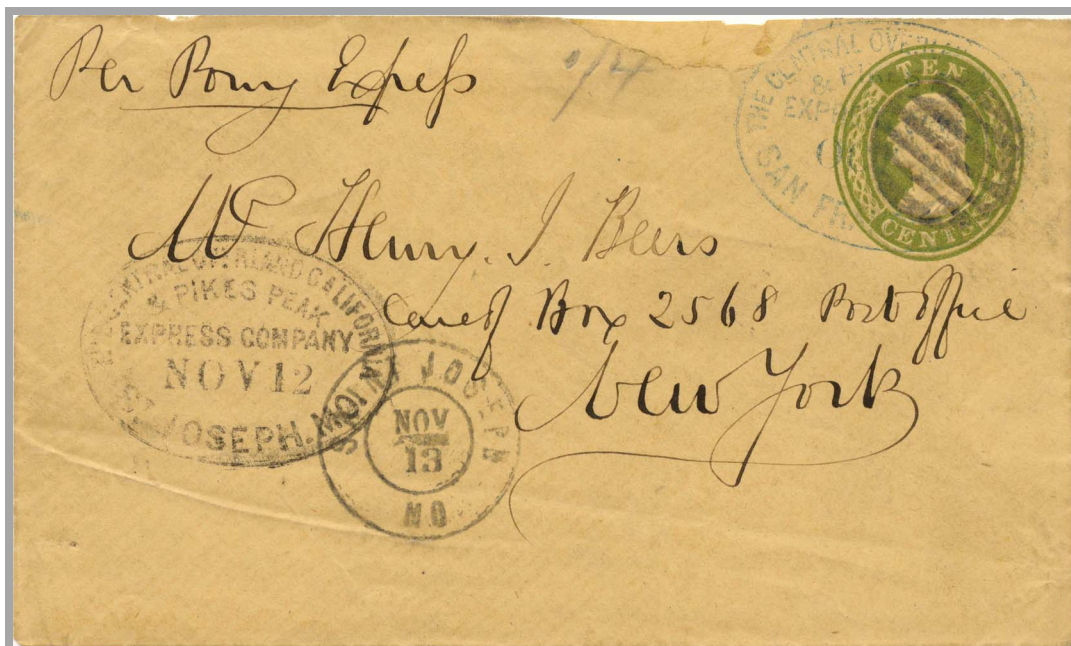 Per Pony Express
1/4
THE CENTRAL OVER
& P
EXP
SAN FR
TEN
CENTS
Mr Henry. J Beers
Care of Box 2568 Post Office
New York
CENTRAL OVERLAND CALIFORNIA
& PIKES PEAK
EXPRESS COMPANY
NOV 12
ST JOSEPH. MO
SAINT JOSEPH
NOV
13
MO